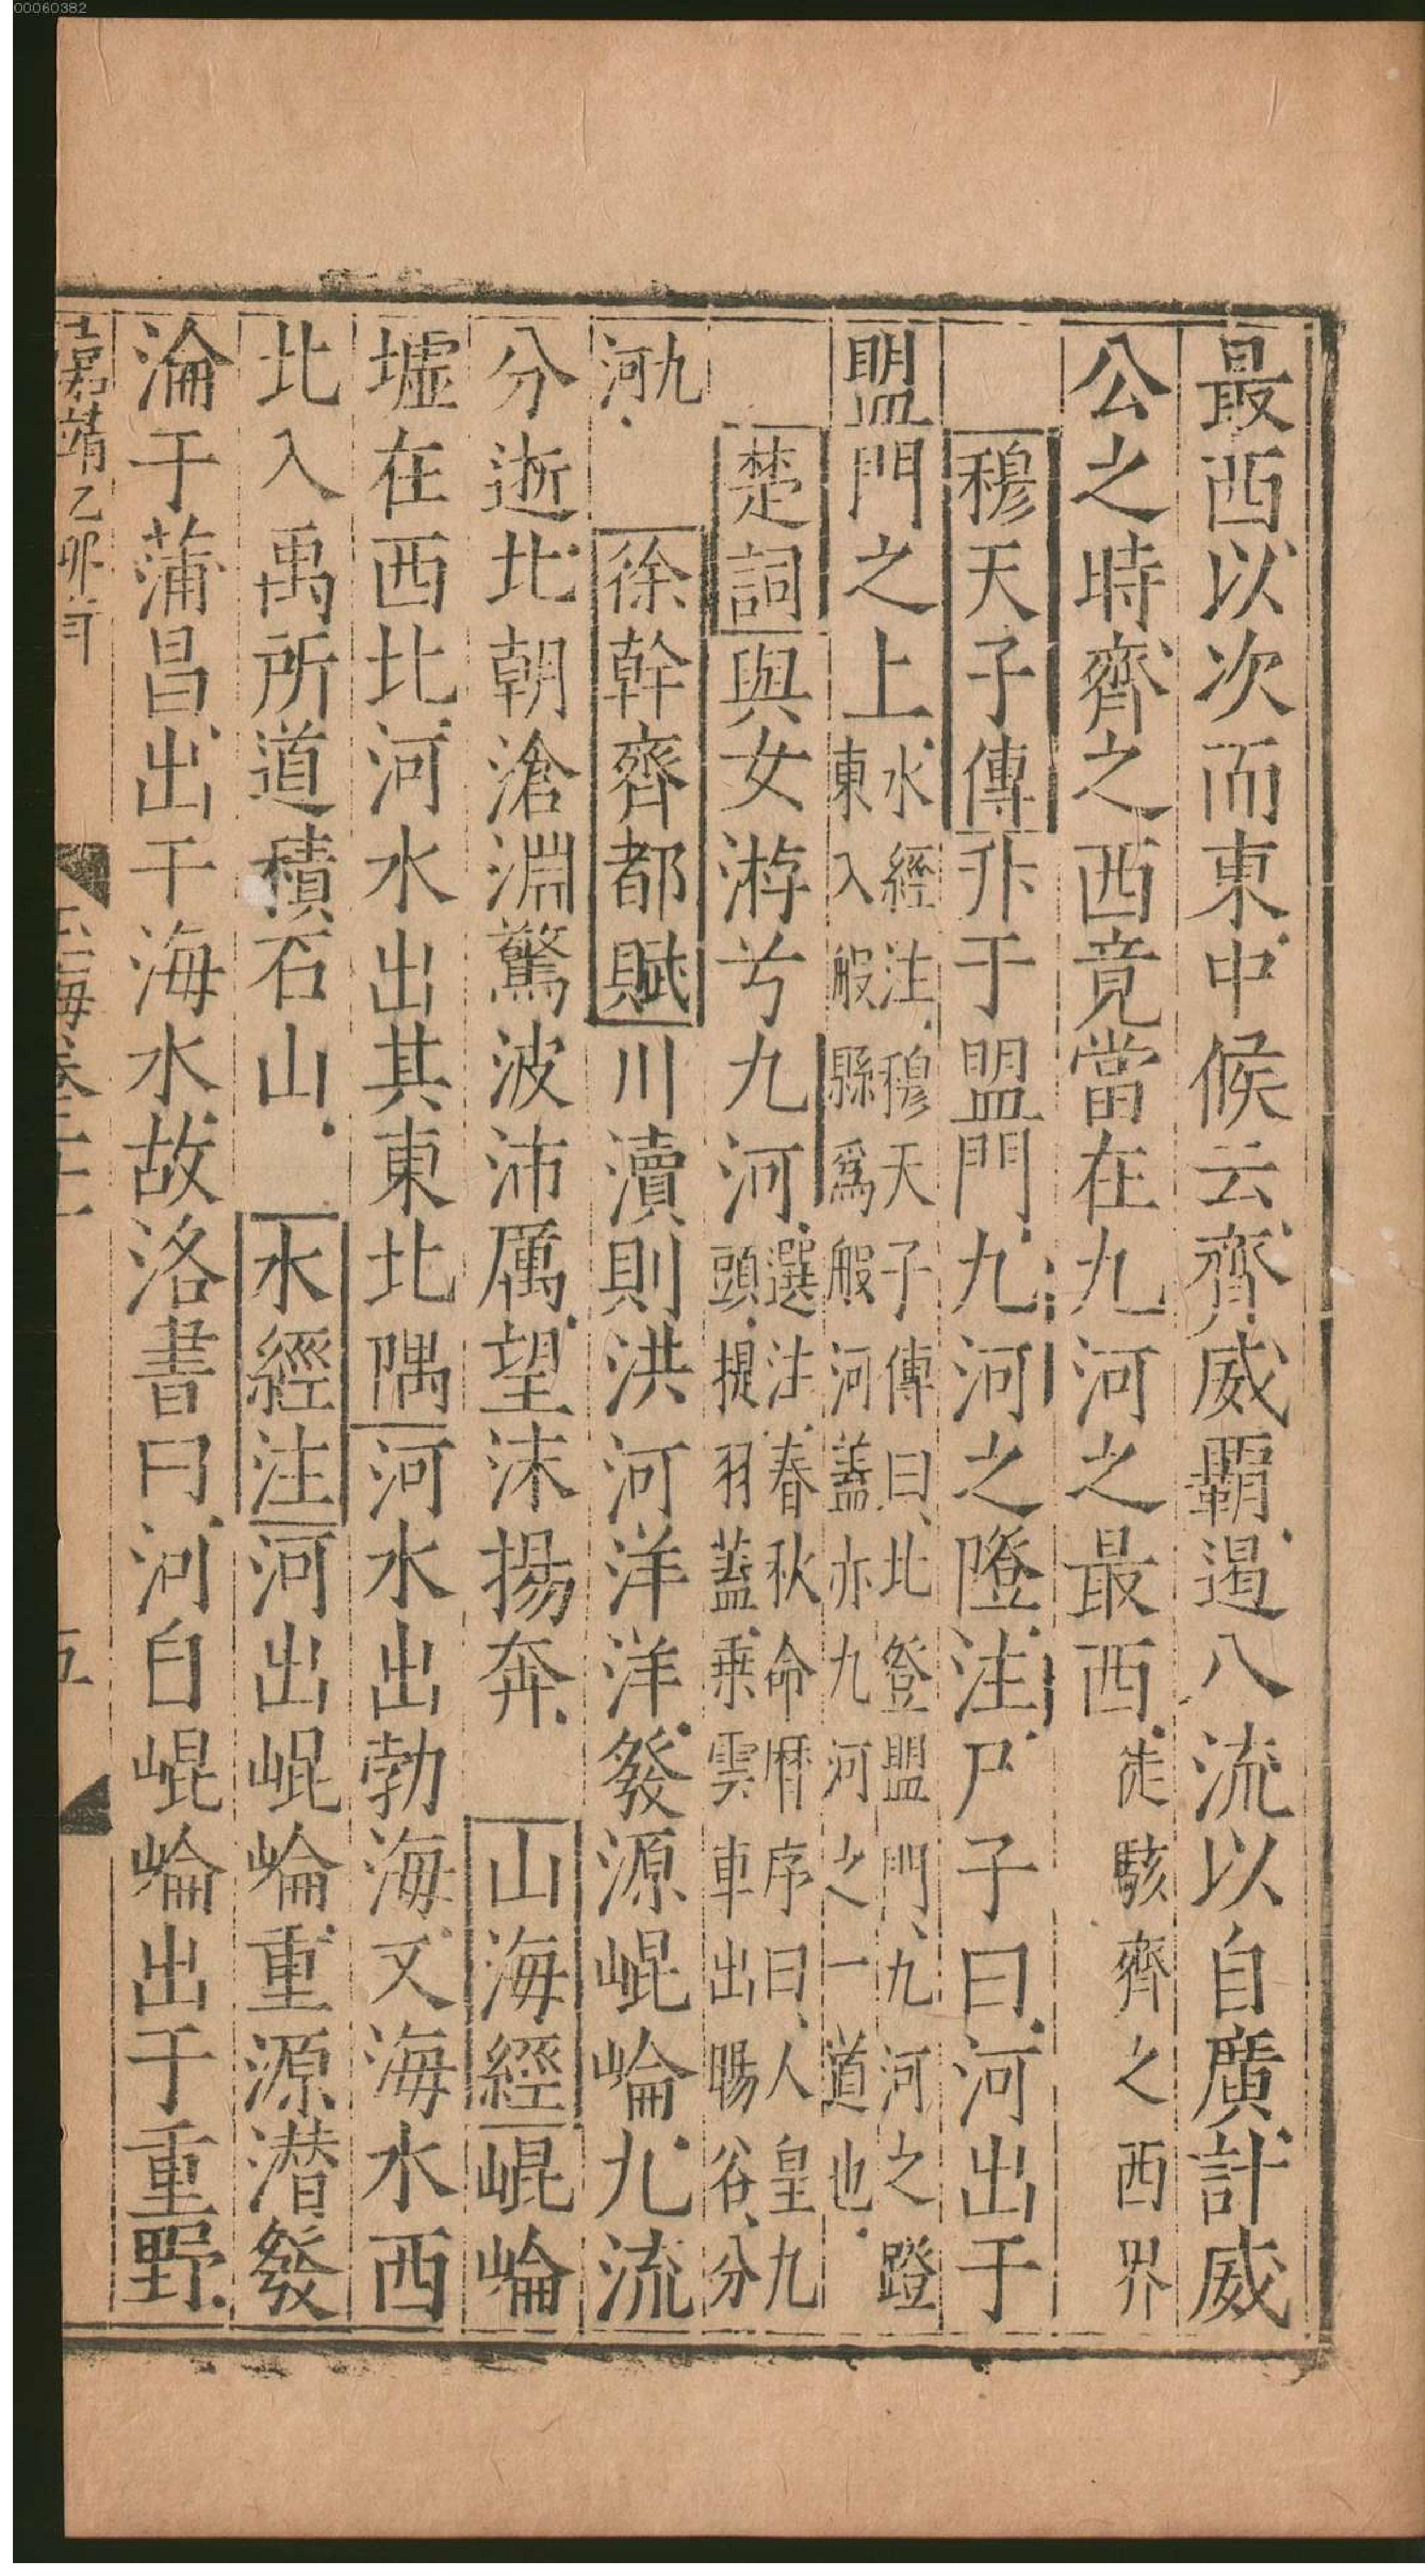 00060382
最西以次而東中候云齊威覇遏八流以自廣計威
公之時齊之西竟當在九河之最西徒駭齊之西界
穆天子傳升于盟門九河之隥注尸子曰河出于
盟門之上水經注穆天子傳曰北登盟門九河之隥
東入般縣爲般河蓋亦九河之一道也
楚詞與女游兮九河選注春秋命曆序曰人皇九
頭提羽蓋乗雲車出暘谷分
九
河
徐幹齊都賦川瀆則洪河洋洋發源崐崘九流
分逝北朝滄淵驚波沛厲望沫揚奔山海經崐崘
墟在西北河水出其東北隅河水出勃海又海水西
北入禹所道積石山水經注河出崐崘重源潛發
淪于蒲昌出于海水故洛書曰河自崐崘出于重野
嘉靖乙卯年
玉海卷二十
五